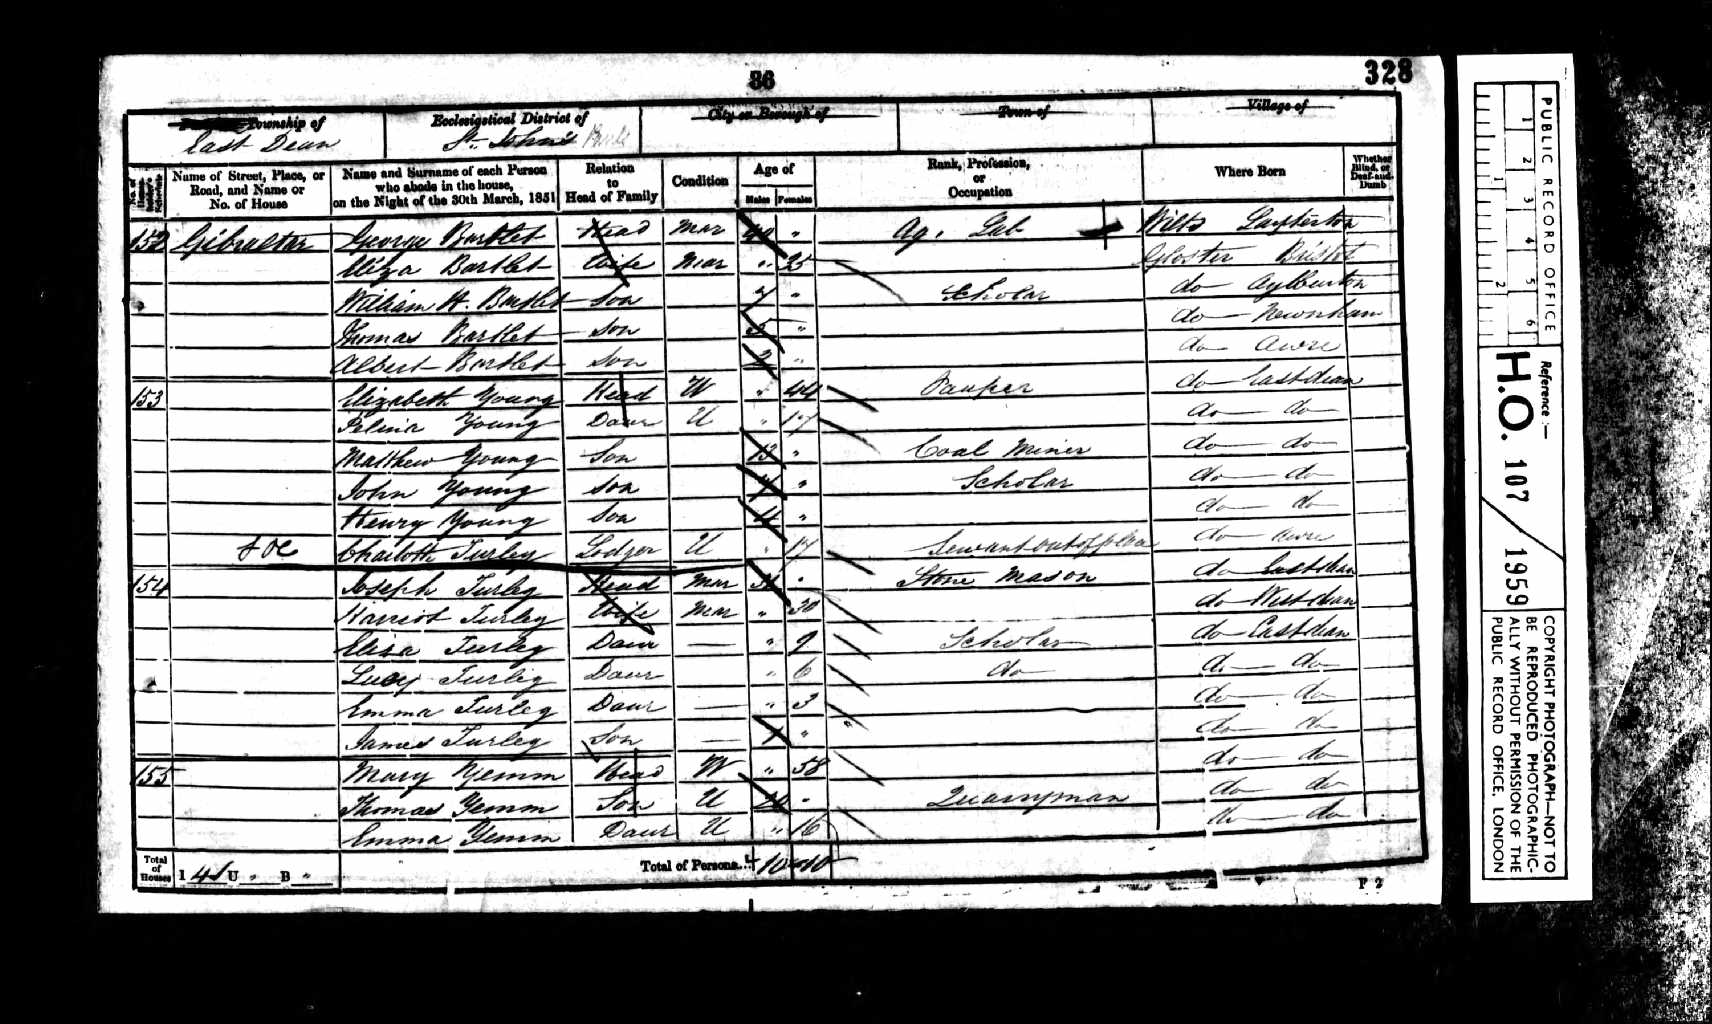 86
328
Township of
East Dean
Ecclesiastical District of
St. John's
City or Borough of
Town of
Village of
No. of Householder's Schedule
Name of Street, Place, or Road, and Name or No. of House
Name and Surname of each Person who abode in the house, on the Night of the 30th March, 1851
Relation to Head of Family
Condition
Age of
Males Females
Rank, Profession, or Occupation
Where Born
Whether Blind, or Deaf-and-Dumb
152 Gibraltar George Bartlet Head Mar 40 " Ag. Lab Wilts
Eliza Bartlet Wife Mar " 35 Gloster Bristol
William H. Bartlet Son 7 " Scholar do Aylburton
Thomas Bartlet Son 5 " do Newnham
Albert Bartlet Son 2 " do Awre
153 Elizabeth Young Head W " 44 Pauper do Eastdean
Selina Young Daur U " 17 do do
Matthew Young Son 13 " Coal Miner do do
John Young Son " Scholar do do
Henry Young Son 4 " do do
Charlotte Turley Lodger U " 17 Servant out of place do Awre
154 Joseph Turley Head Mar " Stone Mason do Eastdean
Harriot Turley Wife Mar " 30 do Westdean
Eliza Turley Daur — " 9 Scholar do Eastdean
Lucy Turley Daur " 6 do do do
Emma Turley Daur — " 3 do do
James Turley Son — 1 " " do do
155 Mary Yemm Head W " 58 do do
Thomas Yemm Son U " Quarryman do do
Emma Yemm Daur U " 16 do do
Total of Houses
I 4 U " B "
Total of Persons... 10 10
F 2
PUBLIC RECORD OFFICE
1 2 3 4 5 6
1 2
Reference :—
H.O. 107 / 1959
COPYRIGHT PHOTOGRAPH—NOT TO
BE REPRODUCED PHOTOGRAPHIC-
ALLY WITHOUT PERMISSION OF THE
PUBLIC RECORD OFFICE, LONDON